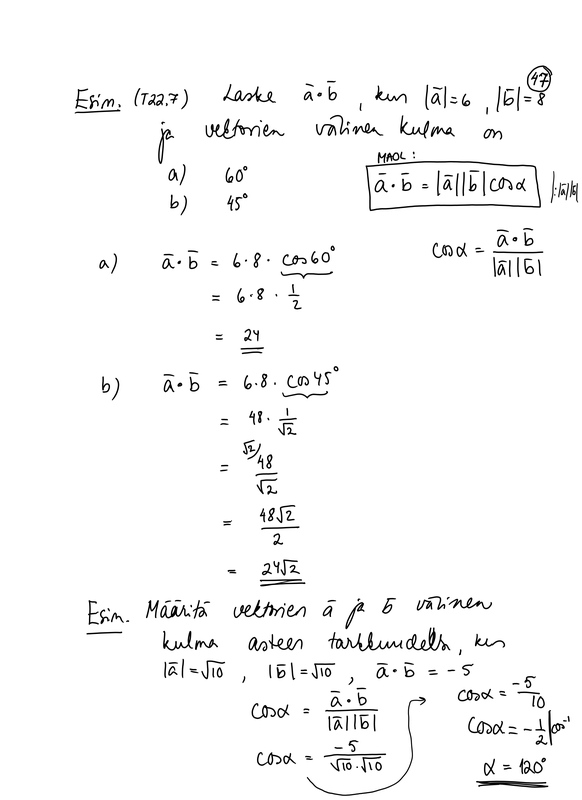 47
Esim. (T22,7) Laske ā·b̄, kun |ā|=6, |b̄|=8
ja vektorien välinen kulma on
a) 60°
b) 45°
MAOL:
ā·b̄ = |ā||b̄|cosα |:|ā||b̄|
cosα = ā·b̄ / |ā||b̄|
a) ā·b̄ = 6·8·cos60°
= 6·8·1/2
= 24
b) ā·b̄ = 6·8·cos45°
= 48·1/√2
= √2) 48/√2
= 48√2/2
= 24√2
Esim. Määritä vektorien ā ja b̄ välinen
kulma asteen tarkkuudella, kun
|ā|=√10, |b̄|=√10, ā·b̄ = -5
cosα = ā·b̄ / |ā||b̄|
cosα = -5 / √10·√10
cosα = -5/10
cosα = -1/2 |cos⁻¹
α = 120°